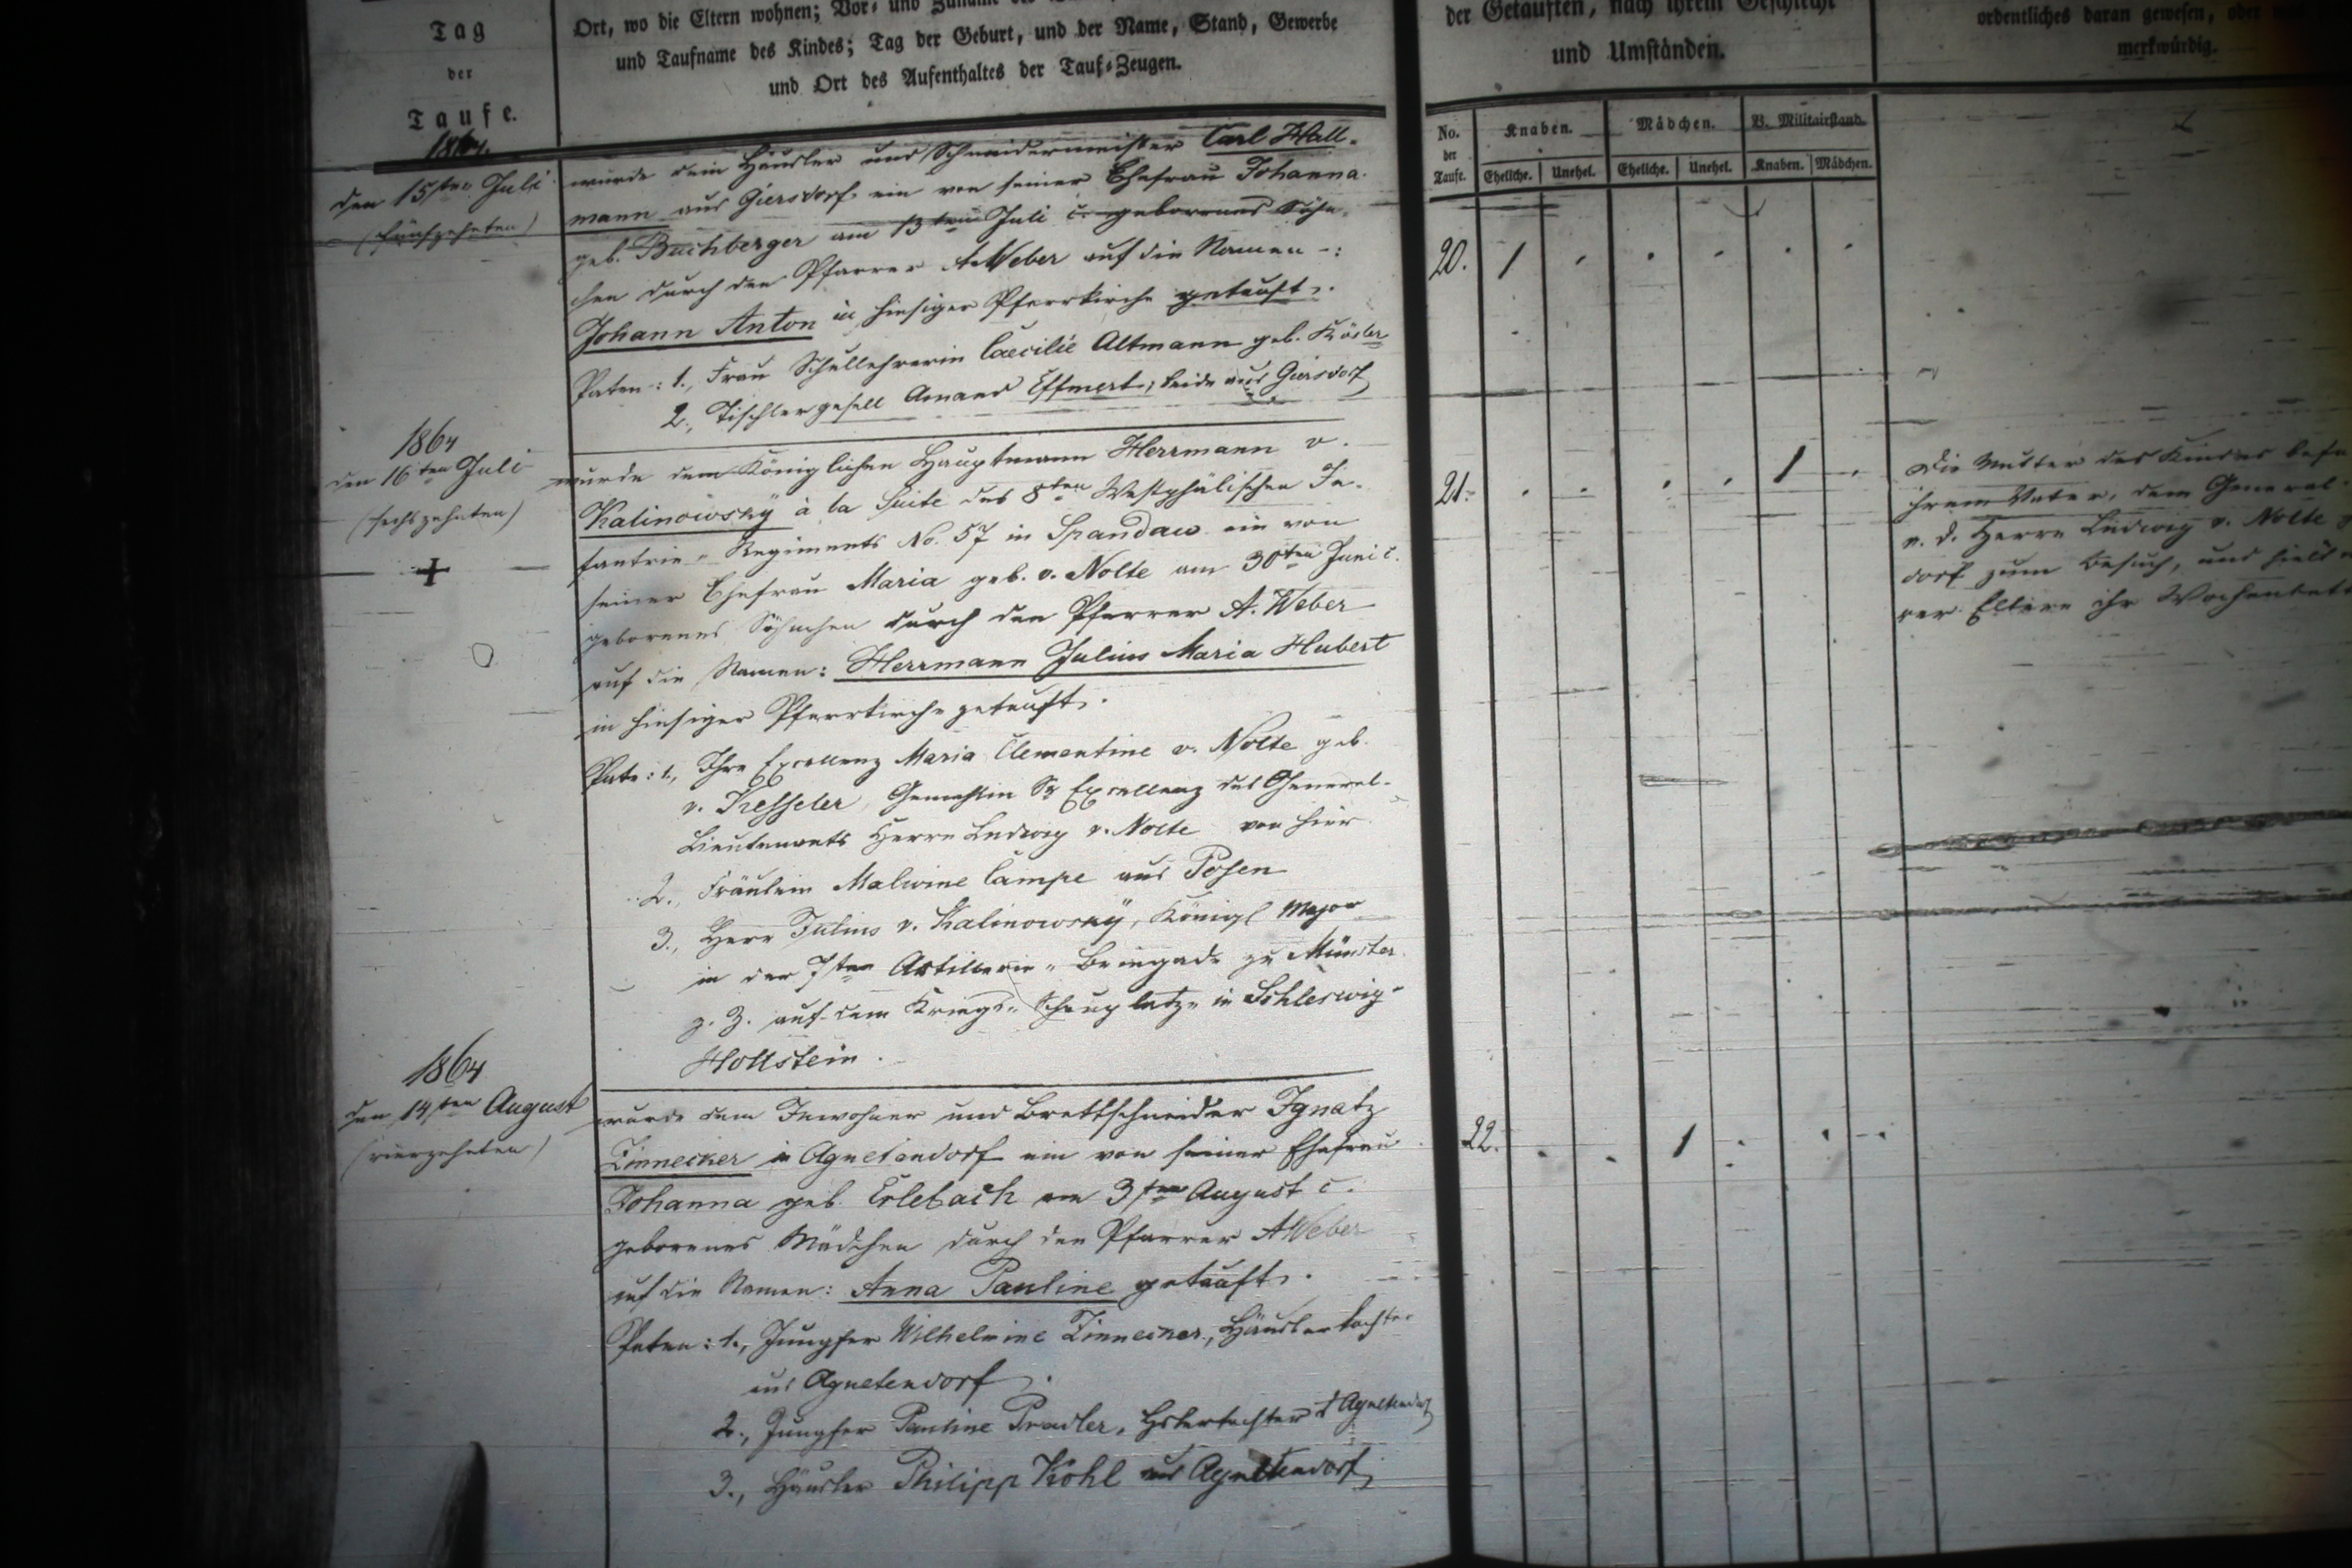 Tag
der
Taufe.
Ort, wo die Eltern wohnen; Vor- und Zuname
und Taufname des Kindes; Tag der Geburt, und der Name, Stand, Gewerbe
und Ort des Aufenthaltes der Tauf-Zeugen.
der Getauften, nach ihrem Geschlecht
und Umständen.
ordentliches daran gewesen, oder
merkwürdig.
No.
der
Taufe.
Knaben.
Mädchen.
B. Militairstand.
Eheliche.
Unehel.
Eheliche.
Unehel.
Knaben.
Mädchen.
1864.
den 15ten Juli
(fünfzehnten)
wurde dem Häusler und Schneidermeister Carl Hall-
mann aus Giersdorf ein von seiner Ehefrau Johanna
geb. Buchberger am 13ten Juli c. geborenes Söhn-
chen durch den Pfarrer A Weber auf die Namen -:
Johann Anton in hiesiger Pfarrkirche getauft.
Paten: 1., Frau Schullehrerin Caecilie Altmann geb. Kösler
2., Tischlergesell Amand Effmert, beide aus Giersdorf
20. 1
1864
den 16ten Juli
(sechszehnten)
wurde dem Königlichen Hauptmann Herrmann v.
Kalinowsky à la Suite des 8ten Westphälischen In-
fantrie-Regiments No. 57 in Spandau ein von
seiner Ehefrau Maria geb. v. Nolte am 30ten Juni c.
geborenes Söhnchen durch den Pfarrer A. Weber
auf die Namen: Herrmann Julius Maria Hubert
in hiesiger Pfarrkirche getauft.
Pate: 1., Ihre Excellenz Maria Clementine v. Nolte geb.
v. Kesseler, Gemahlin Sr Excellenz des General-
Lieutenants Herrn Ludwig v. Nolte von hier
2., Fräulein Malwine Campe aus Posen
3., Herr Julius v. Kalinowsky, Königl Major
in der 7ten Artillerie-Brigade zu Münster
z. Z. auf dem Kriegs-Schauplatze in Schleswig-
Hollstein.
21. 1
Die Mutter des Kindes befa
ihrem Vater, dem General-
a. D. Herrn Ludwig v. Nolte
dorf zum Besuch, und hielt
rer Eltern ihr Wochenbett
1864
den 14ten August
(vierzehnten)
wurde dem Inwohner und Brettschneider Ignatz
Zinnecker in Agnetendorf ein von seiner Ehefrau
Johanna geb. Erlebach am 3ten August c.
geborenes Mädchen durch den Pfarrer A Weber
auf die Namen: Anna Pauline getauft.
Paten: 1., Jungfer Wilhelmine Zinnecker, Häuslertochter
aus Agnetendorf.
2., Jungfer Pauline Pradler, Hslertochter Agnetendorf
3., Häusler Philipp Kohl aus Agnetendorf
22. 1